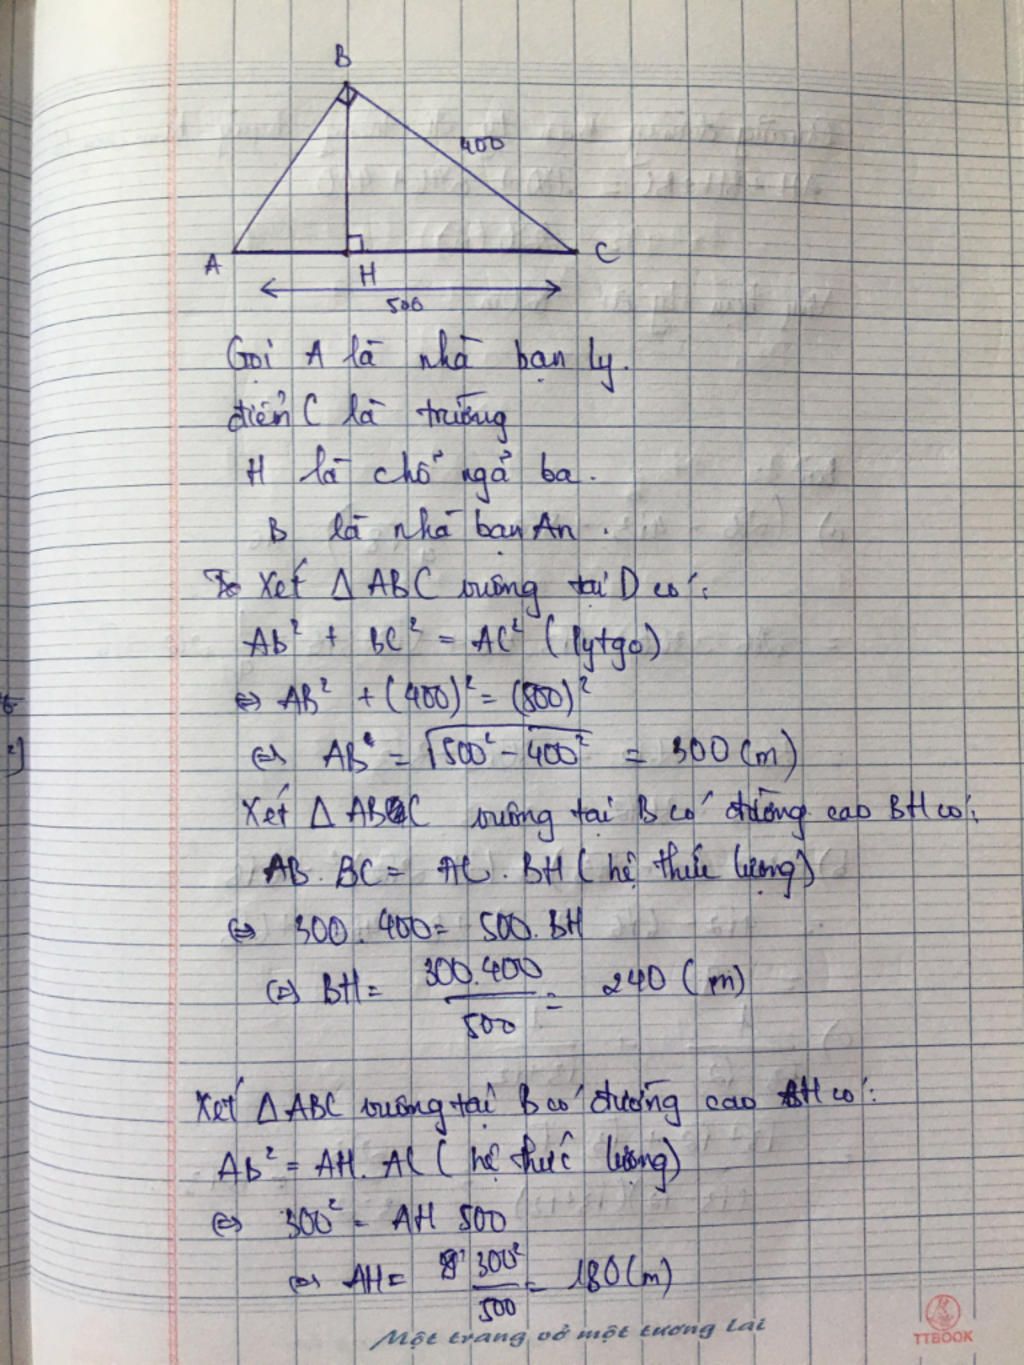 B
400
A
C
H
500
Gọi A là nhà bạn ly.
điểm C là trường
H là chổ ngả ba.
B là nhà bạn An.
Xét △ ABC vuông tại D có:
AB² + BC² = AC² (Pytgo)
⇔ AB² + (400)² = (500)²
⇔ AB² = √500² - 400² = 300 (m)
Xét △ ABC vuông tại B có đường cao BH có:
AB. BC = AC. BH (hệ thức lượng)
⇔ 300. 400 = 500. BH
⇔ BH = 300.400 / 500 = 240 (m)
Xét △ ABC vuông tại B có đường cao BH có:
AB² = AH. AC (hệ thức lượng)
⇔ 300² = AH 500
⇔ AH = 300² / 500 = 180 (m)
Một trang vở một tương lai
TTBOOK